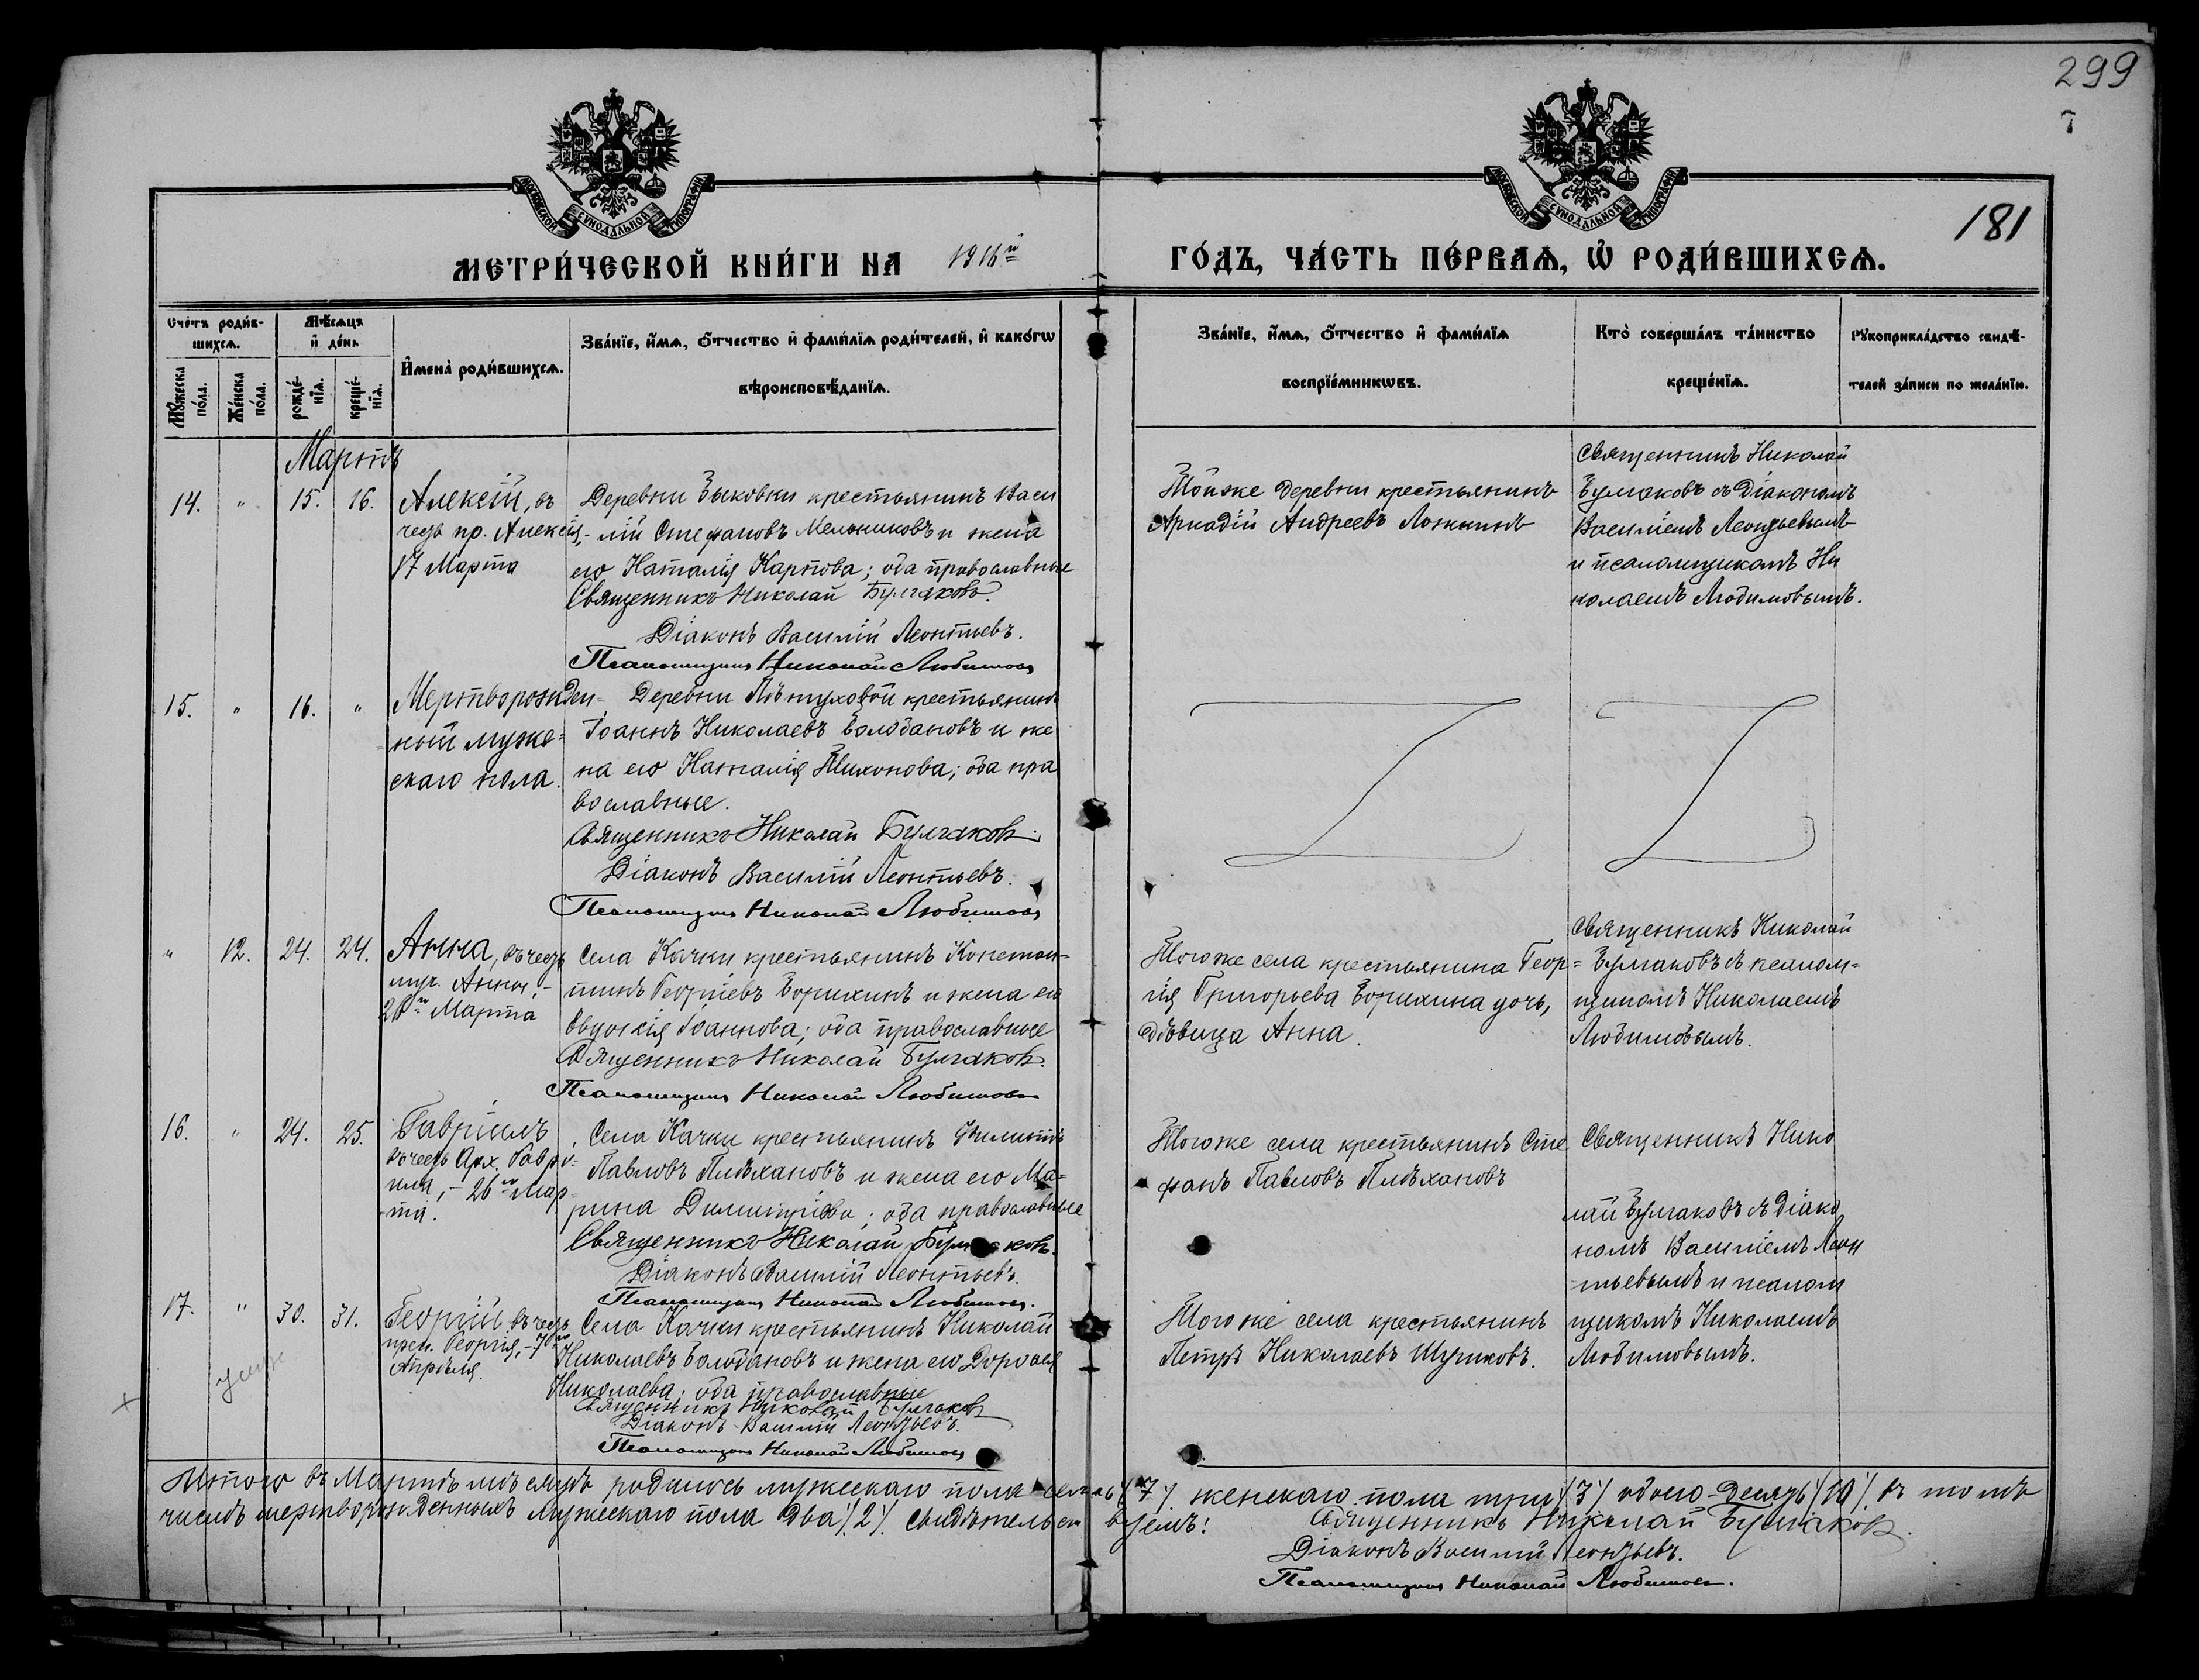 299
181
МОСКОВСКОЙ СѴНОДАЛЬНОЙ ТИПОГРАФІИ
МОСКОВСКОЙ СѴНОДАЛЬНОЙ ТИПОГРАФІИ
МЕТРИ́ЧЕСКОЙ КНИ́ГИ НА 1916й
ГО́ДЪ, ЧА́СТЬ ПЕ́РВАѦ, Ѡ РОДИ́ВШИХСѦ.
Сче́тъ роди́в-
шихсѧ.
Мꙋ́жеска по́ла.
Же́нска по́ла.
Мѣ́сѧцъ
и҆ де́нь
рожде́-
нїѧ.
креще́-
нїѧ.
И҆мена̀ роди́вшихсѧ.
Зва́нїе, и҆́мѧ, ѻ҆́тчество и҆ фами́лїѧ роди́телей, и҆ како́гѡ
вѣроисповѣ́данїѧ.
Зва́нїе, и҆́мѧ, ѻ҆́тчество и҆ фами́лїѧ
воспрїе́мникѡвъ.
Кто̀ соверша́лъ та́инство
креще́нїѧ.
Рꙋкоприкла́дство свидѣ́-
телей за́писи по жела́нїю.
Мартъ
14. " 15. 16.
Алексій, въ
честь пр. Алексія,-
17 Марта
Деревни Быковки крестьянинъ Васи
лій Стефановъ Мельниковъ и жена
его Наталія Карпова; оба православные
Священникъ Николай Булгаковъ.
Діаконъ Василій Леонтьевъ.
Псаломщикъ Николай Любимовъ
Тойже деревни крестьянинъ
Аркадій Андреевъ Ложкинъ
Священникъ Николай
Булгаковъ съ Діакономъ
Василіемъ Леонтьевымъ
и псаломщикомъ Ни
колаемъ Любимовымъ.
15. " 16. "
Мертворожден-
ный муже-
скаго пола.
Деревни Пѣтуховой крестьянинъ
Іоаннъ Николаевъ Болдановъ и же
на его Наталія Тихонова; оба пра
вославные.
Священникъ Николай Булгаковъ
Діаконъ Василій Леонтьевъ.
Псаломщикъ Николай Любимовъ
" 12. 24. 24.
Анна, въ честь
муч. Анны,-
26го Марта
Села Качки крестьянинъ Констан-
тинъ Георгіевъ Борихинъ и жена его
Евдокія Іоаннова; оба православные
Священникъ Николай Булгаковъ.
Псаломщикъ Николай Любимовъ
Тогоже села крестьянина Геор-
гія Григорьева Борихина дочь,
дѣвица Анна.
Священникъ Николай
Булгаковъ съ псалом-
щикомъ Николаемъ
Любимовымъ.
16. " 24. 25.
Гавріилъ
въ честь Арх. Гаврі-
ила,- 26го Мар-
та.
Села Качки крестьянинъ Филиппъ
Павловъ Плѣхановъ и жена его Ма-
рина Димитріева; оба православные
Священникъ Николай Булгаковъ.
Діаконъ Василій Леонтьевъ.
Псаломщикъ Николай Любимовъ.
Тогоже села крестьянинъ Сте
фанъ Павловъ Плѣхановъ
Священникъ Нико
лай Булгаковъ съ Діако
номъ Василіемъ Леон
тьевымъ и псалом
щикомъ Николаемъ
Любимовымъ.
17. " 30. 31.
Георгій, въ честь
преп. Георгія,- 7го
Апрѣля.
Села Качки крестьянинъ Николай
Николаевъ Болдановъ и жена его Дороѳея
Николаева; оба православные
Священникъ Николай Булгаковъ
Діаконъ Василій Леонтьевъ.
Псаломщикъ Николай Любимовъ
Тогоже села крестьянинъ
Петръ Николаевъ Шуриковъ.
Итого въ Мартѣ мѣсяцѣ родилось мужескаго пола семь (7), женскаго пола три (3) обоего десять (10), въ томъ
числѣ мертворожденныхъ мужескаго пола два (2). Свидѣтельствуемъ:
Священникъ Николай Булгаковъ.
Діаконъ Василій Леонтьевъ.
Псаломщикъ Николай Любимовъ.